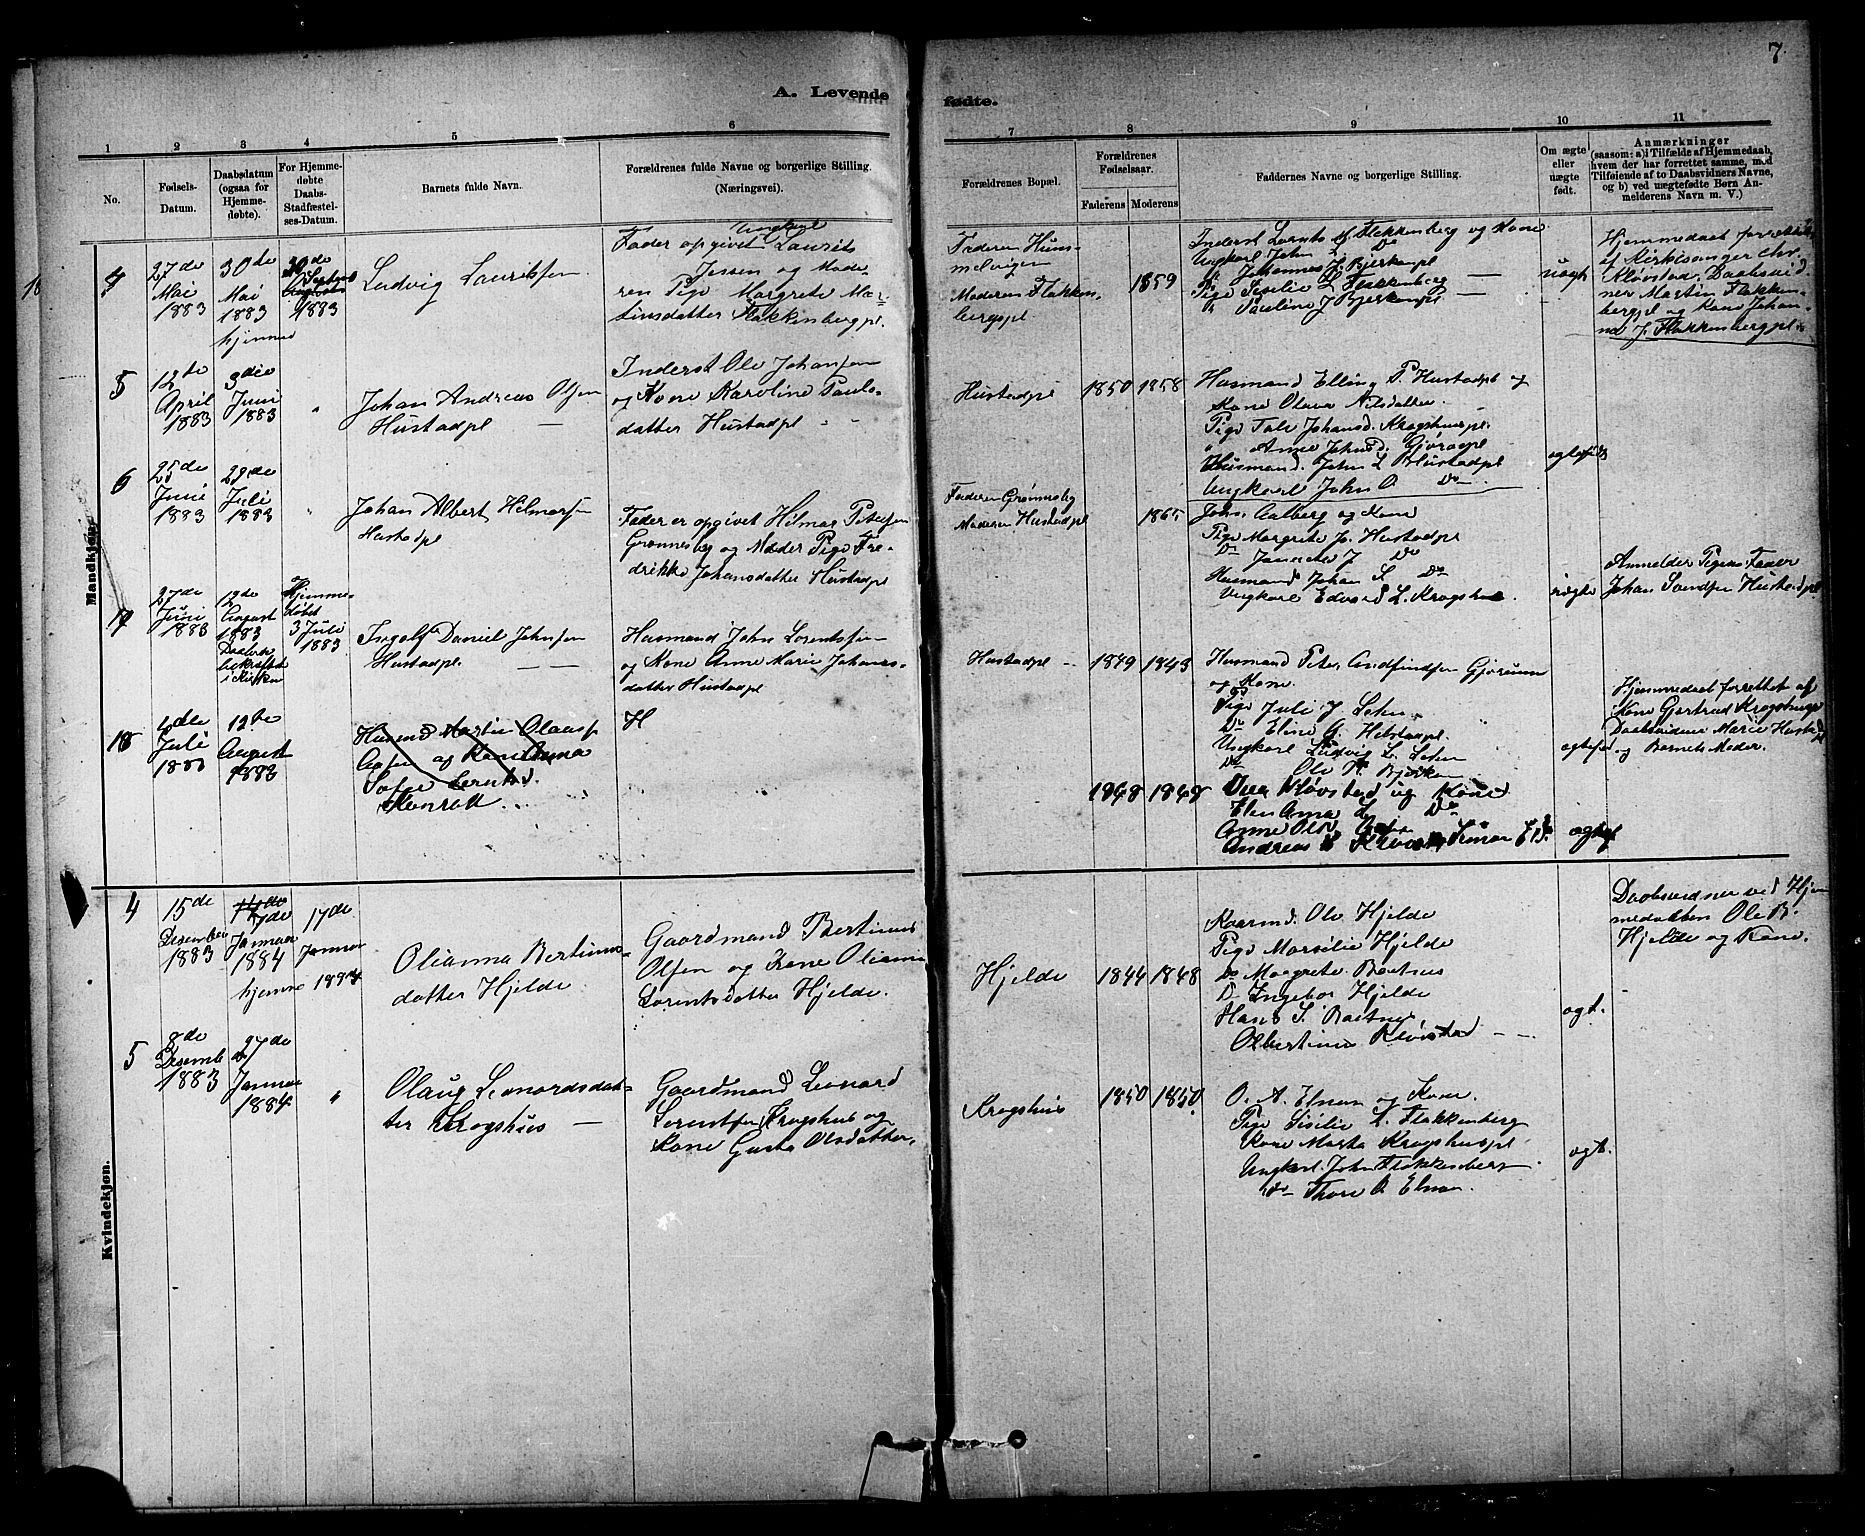 7
A. Levende fødte.
1 2 3 4 5 6 7 8 9 10 11
No.
Fødsels-Datum.
Daabsdatum (ogsaa for Hjemmedøbte).
For Hjemmedøbte Daabs-Stadfæstelses-Datum.
Barnets fulde Navn.
Forældrenes fulde Navne og borgerlige Stilling. (Næringsvei).
Forældrenes Bopæl.
Forældrenes Fødselsaar.
Faderens Moderens
Faddernes Navne og borgerlige Stilling.
Om ægte eller uægte født.
Anmærkninger
(saasom: a) i Tilfælde af Hjemmedaab, hvem der har forrettet samme, med Tilføielse af to Daabsvidners Navne, og b) ved uægtefødte Børn Anmelderens Navn m. V.)
Mandkjøn.
4
27de
Mai
1883
30de
Mai
1883
hjemme
30de
1883
Ludvig Lauritsen
Ungkarl
Fader opgivet Laurits
Jessen og Mode-
ren Pige Margrete Mar-
tinsdatter Flakkenbergpl.
Faderen Hum-
melvigen
Moderen Flakken-
bergspl
1859
Inderst Lornts M Flakkenberg og Kone
Ungkarl John L Do
Johannes J. Bjerkenpl
Pige Sisilie L Flakkenberg
Pauline J Bjerkenpl
uægt
Hjemmedaab forrettet
af Kirkesanger Chr.
Kløvstad. Daabsvid-
ner Martin Flakken-
bergpl og Kone Johan-
na J. Flakkenbergpl
5
12te
April
1883
3die
Juni
1883
"
Johan Andreas Olsen
Hustadpl
Inderst Ole Johansen
og Kone Karoline Pauls-
datter Hustadpl
Hustadpl
1850 1858
Husmand Elling P. Hustadpl og
Kone Olava Nilsdatter
Pige Tale Johansd. Krogshuspl.
" Anne Johnsd. Gjøraapl
Husmand John L Hustadpl
Ungkarl John O Do
ægtefød
6
25de
Juni
1883
29de
Juli
1883
"
Johan Albert Helmersen
Hustadpl
Fader er opgivet Helmar Petersen
Grønnesby og Moder Pige Fre-
drikke Johansdatter Hustadpl
Faderen Grønnesby
Moderen Hustadpl
1865
Johs. Aalberg og Kone
Pige Margrete Jo. Hustadpl
Do Jannete J Do
Husmand Johan S. Do
Ungkarl Edvard L. Krogshus.
uægte
Anmelder Pigens Fader
Johan Hustadpl
7
27de
Juni
1883
12te
August
1883
Daaben
bekræftet
i Kirken
Hjemme-
døbt
3 Juli
1883
Ingolf Daniel Johnsen
Hustadpl.
Husmand John Lorentssen
og Kone Anne Marie Johans-
datter Hustadpl
Hustadpl
1849 1843
Husmand Peter Andfindsen Gjøraunn
og Kone
Pige Juli J Leten
Do Eline G. Hustadpl.
Ungkarl Ludvig L. Leten
Do Ole P. Bjerken
ægtefød
Hjemmedaab forrettet af
Kone Gjertrud Krogshuspl
Daabsvidner Marie Hustadpl
og Barnets Moder.
8
4de
Juli
1883
12te
August
1883
H
1848 1848
Kløvstad og Kone
Elen Anna L Do
ægtef
Kvindekjøn.
4
15de
Desember
1883
17de
Januar
1884
hjemme
17de
Januar
1884
Olianna Bertinus-
datter Hjelde
Gaardmand Bertinus
Olsen og Kone Olianna
Lorentsdatter Hjelde.
Hjelde
1844 1848
Kaarmd. Ole Hjelde
Pige Marselie Hjelde
Do Margrete Bartnes
Do Ingebor Hjelde
Hans S. Bartnes
Olbertine Kløvstad
ægt.
Daabsvidner ved Hjem-
medaaben Ole B.
Hjelde og Kone.
5
8de
Desemb
1883
27de
Januar
1884
"
Olaug Leonardsdat-
ter Krogshus
Gaardmand Leonard
Lorentsen Krogshus og
Kone Gusta Olsdatter
Krogshus
1850 1850
O. A. Elnan og Kone.
Pige Sisilie L. Flakkenberg
Kone Marta Krogshuspl
Ungkarl John Flakkenberg
do Thore O Elnan.
ægt.